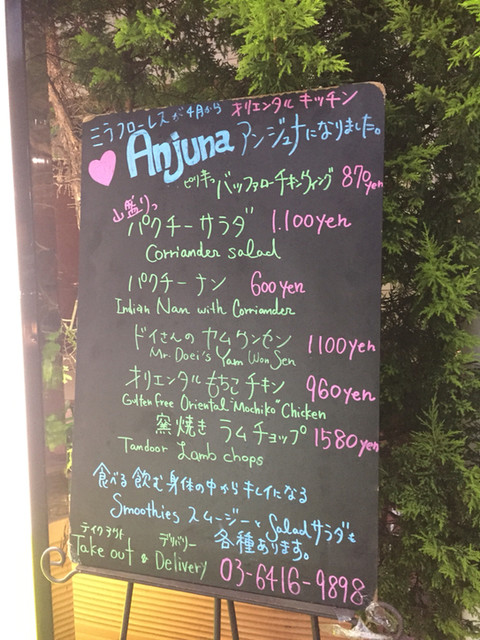 ミラフローレスが4月から オリエンタル キッチン
Anjuna アンジュナになりました。
ピリ辛っ バッファローチキンウィング 870yen
山盛りっ
パクチーサラダ 1.100yen
Corriander salad
パクチーナン 600yen
Indian Nan with Corriander
ドイさんの ヤムウンセン 1100yen
Mr. Doei's Yam Won Sen
オリエンタル もちこ チキン 960yen
Gulten free Oriental "Mochiko" Chicken
窯焼き ラムチョップ 1580yen
Tandoor Lamb chops
食べる 飲む 身体の中から キレイになる
Smoothies スムージーと Salad サラダも
各種あります。
テイクアウト デリバリー
Take out & Delivery 03-6416-9898